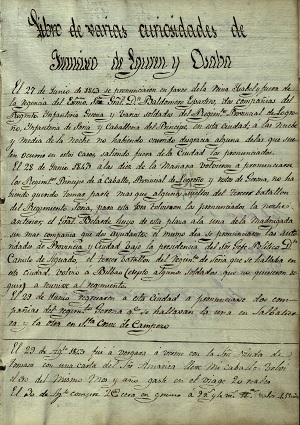 Libro de varias curiosidades de
Francisco de y
El 27 de Junio de 1843 se pronunciaron en favor de la Reina Isabel, fuera de
la regencia del Exmo. Gral. Dn. Baldomero Espartero, dos compañias del
Regimto. Infanteria Gerona y varios soldados del Regimto. Provincial de Logroño,
Infanteria de Soria y Caballeria del Principe, en esta ciudad, a las nueve
y media de la noche no habiendo ocurrido desgracia alguna de las que sue-
len ocurrir en estos casos, saliendo fuera de la Ciudad los pronunciados.
El 28 de Junio de 1843 a las diez de la mañana volvieron a pronunciarse
los Regimtos. de a Caballo, Provincial de Logroño y resto de Gerona, no ha-
biendo querido tomar parte mas que alguna del tercer batallon
del Regimiento Soria, para esto los pronunciados la noche
anterior; el Gral. de esta plaza a la una de la madrugada
sin mas compañia que dos ayudantes; el mismo dia se pronunciaron las auto-
ridades de Provincia y Ciudad bajo la presidencia del Sor. Gefe Politico Dn.
Camilo de el tercer batallon del Regimto. de Soria que se hallaba en
esta ciudad, volvio a Bilbao (escepto algunos soldados que no quisieron se-
guir) a unirse al regimiento.
El 29 de Junio regresaron a esta Ciudad a pronunciarse dos com-
pañias del regimto. Gerona 3º se hallaban la una en Salvatier-
ra y la otra en Sta. Cruz de Campero
El 29 de Agto. 1843 fui a Vergara a con la Sra. Viuda de
con una carta del Sor. mi caballo. Volvi
el 30 del mismo mes y año, gaste en el viage 20 reales
El 30 de Agto. compre